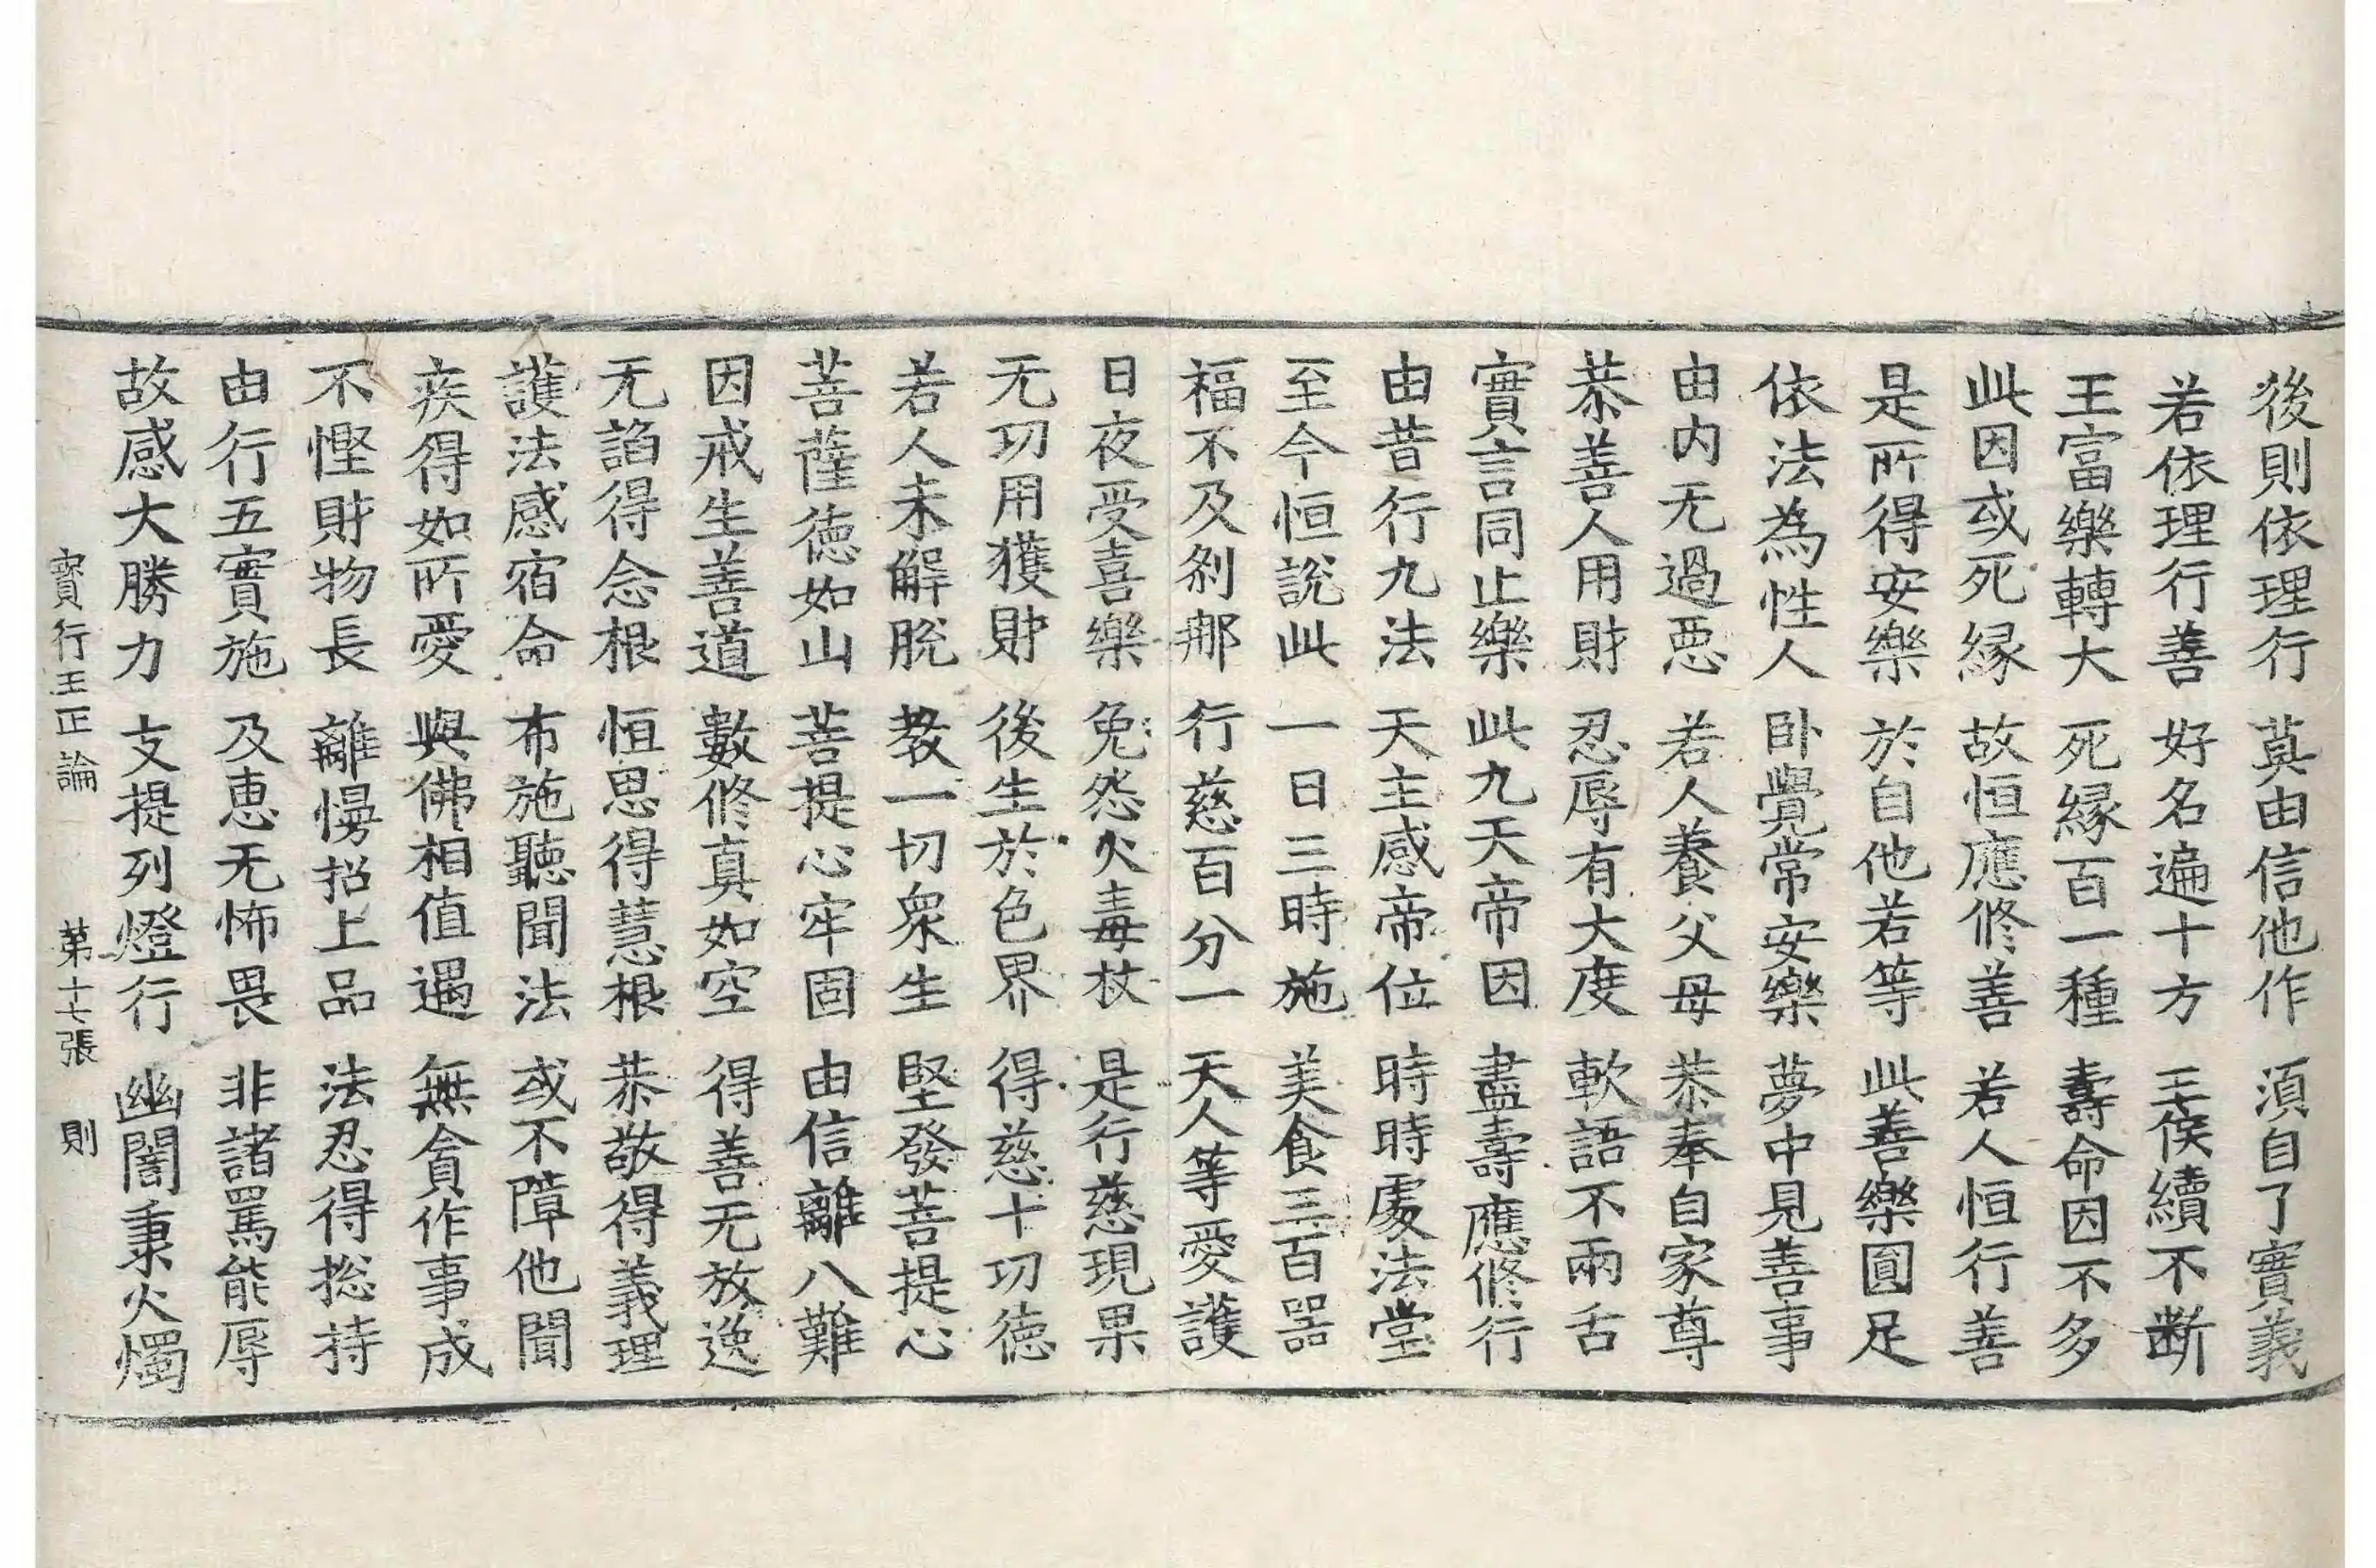 後則依理行 莫由信他作 湏自了實義
若依理行善 好名遍十方 王侯續不断
王富樂轉大 死縁百一種 壽命因不多
此因或死縁 故恒應修善 若人恒行善
是所得安樂 於自他若等 此善樂圓足
依法為性人 卧覺常安樂 夢中見善事
由内无過惡 若人養父母 恭奉自家尊
恭善人用財 忍辱有大度 軟語不兩舌
實言同止樂 此九天帝因 盡壽應修行
由昔行九法 天主感帝位 時時處法堂
至今恒說此 一日三時施 美食三百器
福不及剎那 行慈百分一 天人等愛護
日夜受喜樂 免怨火毒杖 是行慈現果
无功用獲財 後生於色界 得慈十功徳
若人未解脫 教一切衆生 堅發菩提心
菩薩徳如山 菩提心牢固 由信離八難
因戒生善道 數修真如空 得善无放逸
无諂得念根 恒思得慧根 恭敬得義理
護法感宿命 布施聽聞法 或不障他聞
疾得如所愛 與佛相值遇 無貪作事成
不慳財物長 離慢招上品 法忍得揔持
由行五實施 及惠无怖畏 非諸罵能辱
故感大勝力 支提列燈行 幽闇秉火燭
寳行王正論 第十七張 則